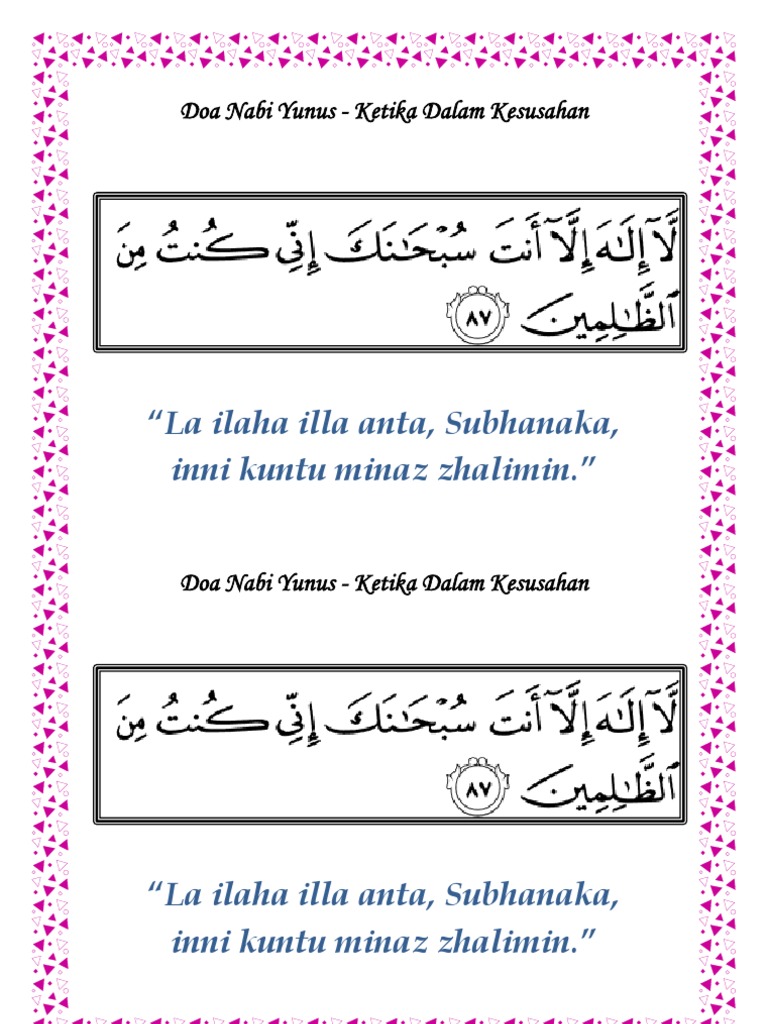 Doa Nabi Yunus - Ketika Dalam Kesusahan
لَّآ إِلَٰهَ إِلَّآ أَنتَ سُبْحَٰنَكَ إِنِّي كُنتُ مِنَ
ٱلظَّٰلِمِينَ ٨٧
“La ilaha illa anta, Subhanaka,
inni kuntu minaz zhalimin.”
Doa Nabi Yunus - Ketika Dalam Kesusahan
لَّآ إِلَٰهَ إِلَّآ أَنتَ سُبْحَٰنَكَ إِنِّي كُنتُ مِنَ
ٱلظَّٰلِمِينَ ٨٧
“La ilaha illa anta, Subhanaka,
inni kuntu minaz zhalimin.”